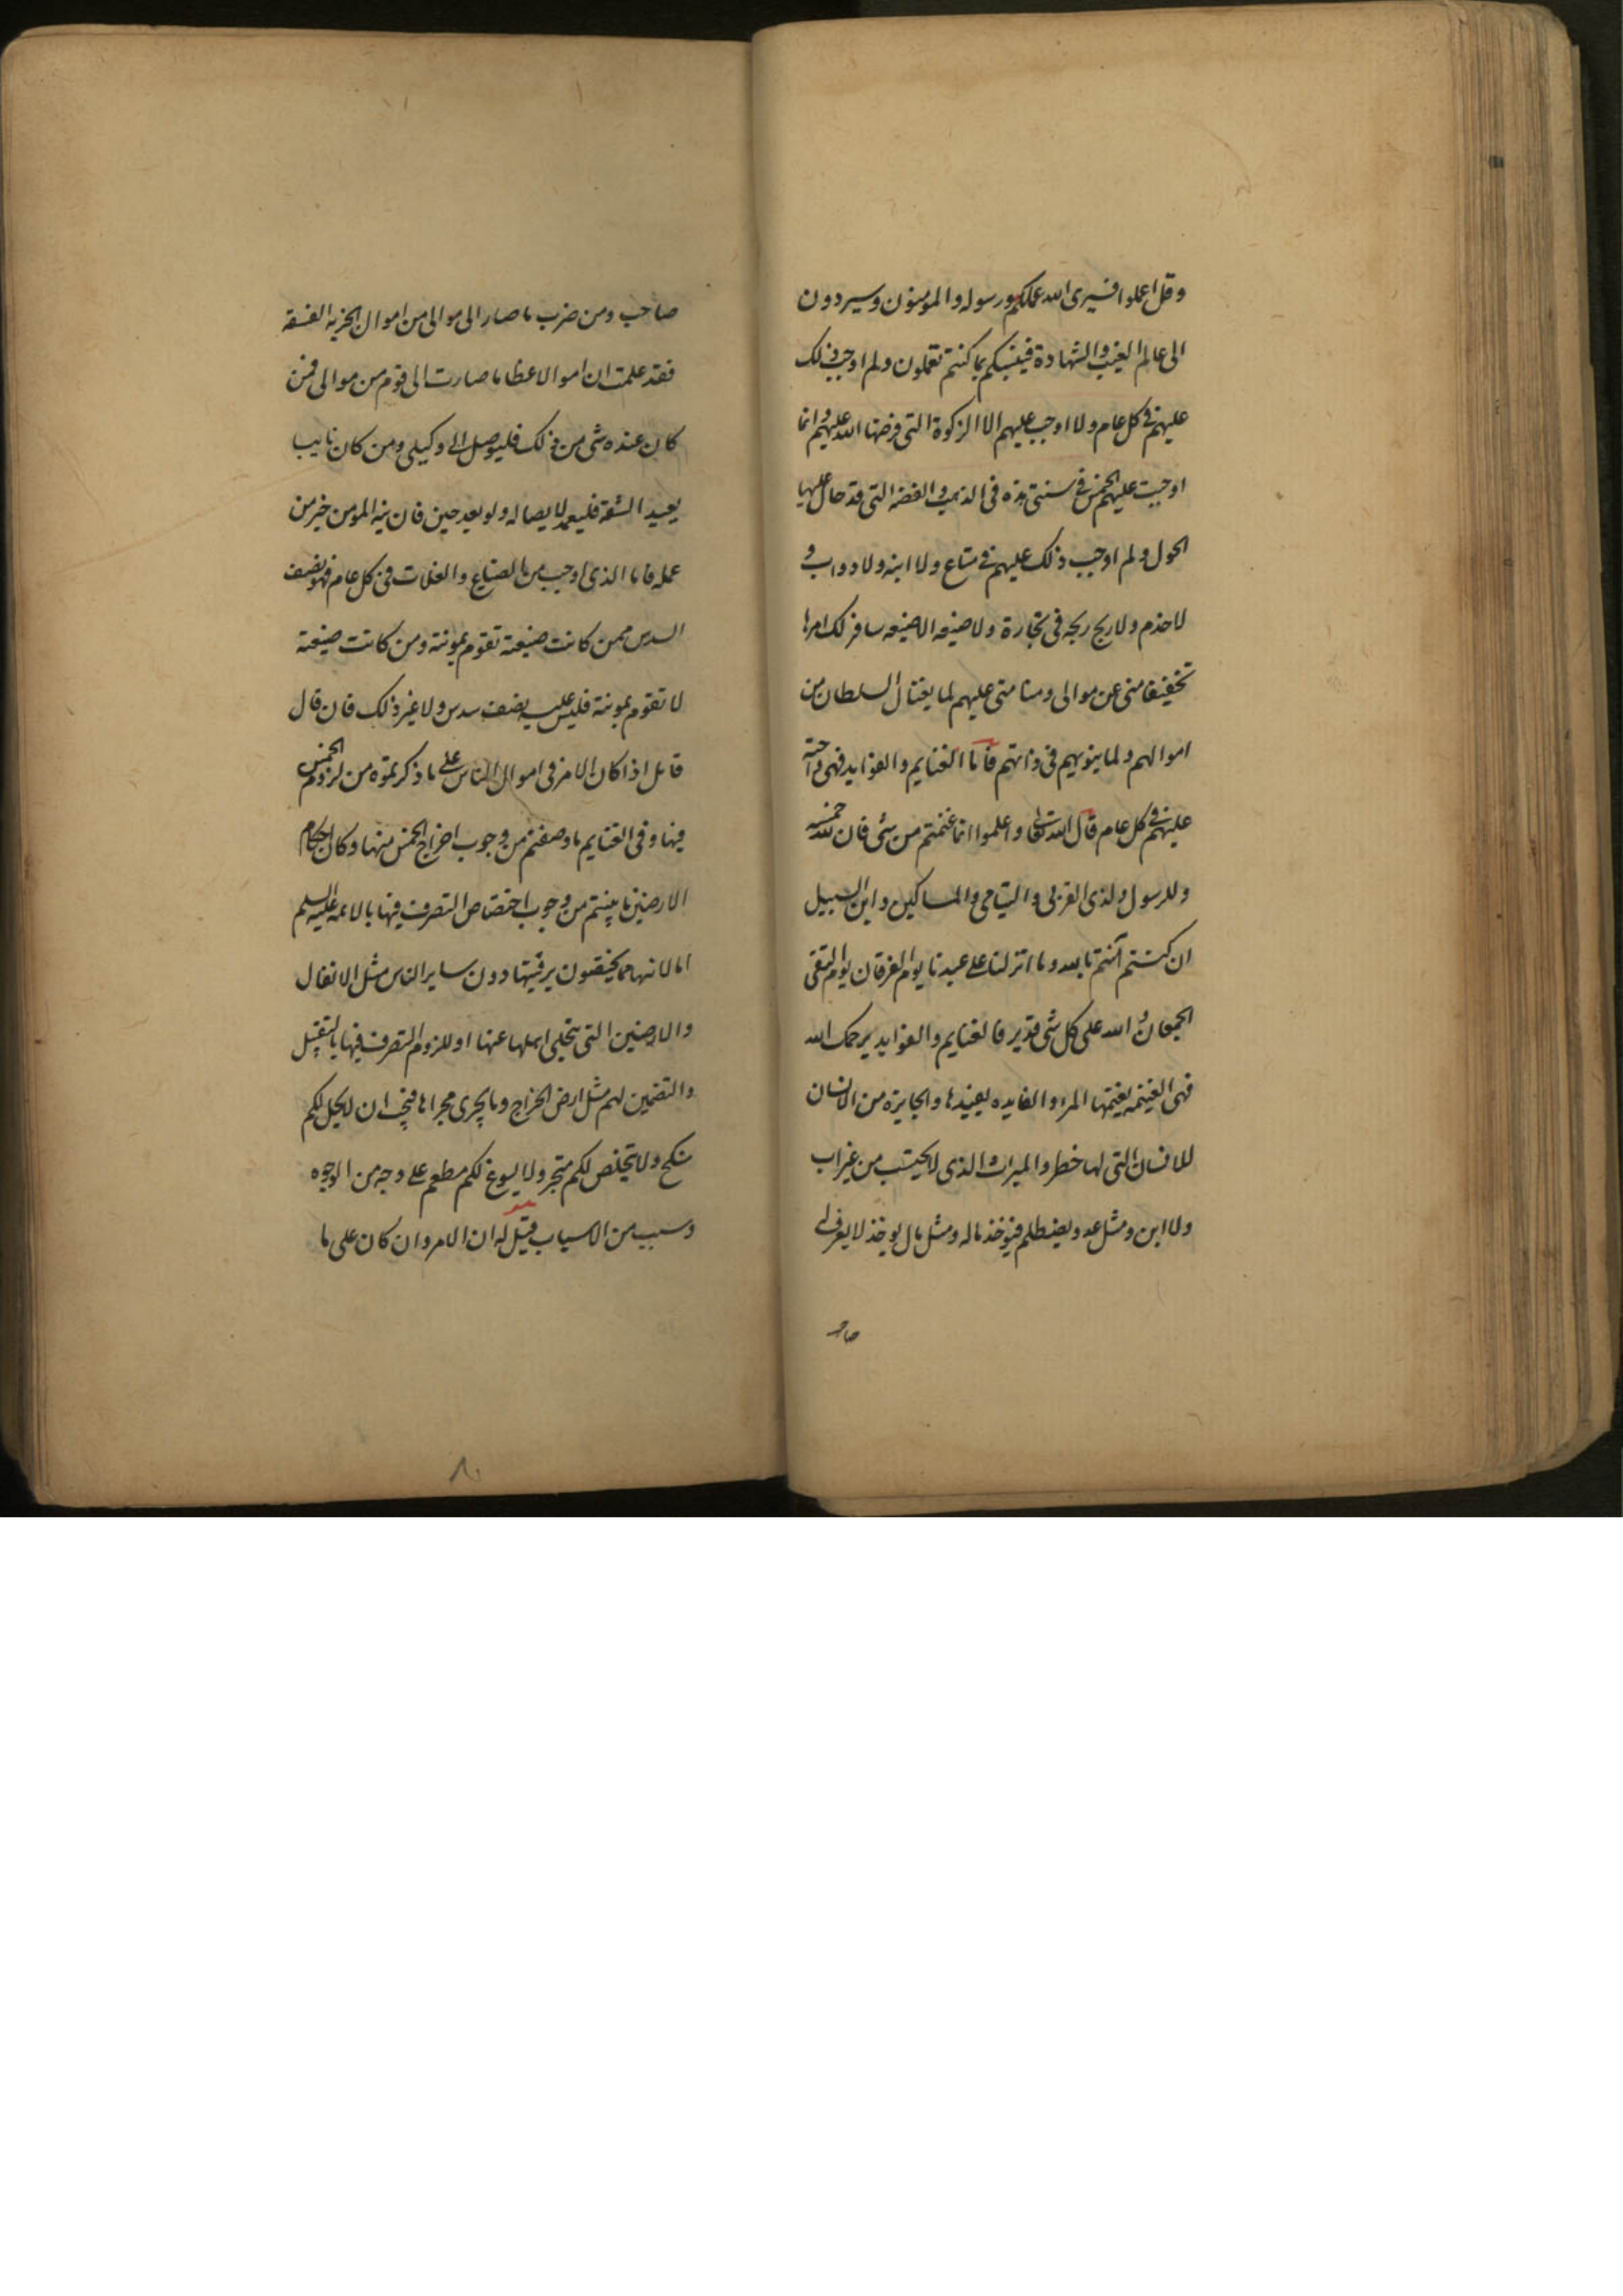 وقل اعملوا فسيرى الله عملكم ورسوله والمومنون وسيردون
الى عالم الغيب والشهادة فينبئكم بما كنتم تعملون ولم اوجب ذلك
عليهم في كل عام ولا اوجب عليهم الا الزكوة التي فرضها الله عليهم وانما
اوجبت عليهم الخمس في سنتي هذه في الذهب والفضه التي قد حال عليها
الحول ولم اوجب ذلك عليهم في متاع ولا انيه ولا دواب و
لا خدم ولا ربح ربحه في تجارة ولا ضيعه الا ضيعه سافسر لك امرها
تخفيفا مني عن موالى ومنا مني عليهم لما يغتال السلطان من
اموالهم ولما ينوبهم في ذاتهم فاما الغنايم والفوايد فهي واجبة
عليهم في كل عام قال الله تعالى واعلموا انما غنمتم من شئ فان لله خمسه
وللرسول ولذى القربى واليتامى والمساكين وابن السبيل
ان كنتم آمنتم بالله وما انزلنا على عبدنا يوم الفرقان يوم التقى
الجمعان والله على كل شى قدير فالغنايم والفوايد يرحمك الله
فهى الغنيمه يغنمها المرء والفايده يفيدها والجايزه من الانسان
للانسان التى لها خطر والميراث الذى لا يحتسب من غير اب
ولا ابن ومثل عدو يضطلم فيوخذ ماله ومثل مال يوخذ لا يعرف له
صاحب
صاحب ومن ضرب ما صار الى موالى من اموال الخرميه الفسقه
فقد علمت ان اموالا عظاما صارت الى قوم من موالى فمن
كان عنده شى من ذلك فليوصل الى وكيلى ومن كان نايب
بعيد الشقة فليعمد لايصاله ولو بعد حين فان نيه المومن خير من
عمله فاما الذى اوجب من الضياع والغلات فى كل عام فهو نصف
السدس ممن كانت ضيعته تقوم بمونته ومن كانت ضيعته
لا تقوم بمونته فليس عليه نصف سدس ولا غير ذلك فان قال
قائل اذا كان الامر فى اموال الناس على ما ذكرتموه من لزوم الخمس
فيها وفى الغنايم ما وصفتم من وجوب اخراج الخمس منها وكان احكام
الارضين ما بينتم من وجوب اختصاص التصرف فيها بالائمه عليهم السلم
اما لانها مما يختصون برقبتها دون ساير الناس مثل الانفال
والارضين التى ينجلى اهلها عنها او للزوم التصرف فيها بالتقبيل
والتضمين لهم مثل ارض الخراج وما يجرى مجراها فيجب ان لا يحل لكم
منكح ولا يتخلص لكم متجر ولا يسوغ لكم مطعم على وجه من الوجوه
وسبب من الاسباب قيل له ان الامر وان كان على ما